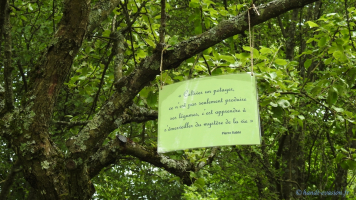 « Cultiver un potager,
ce n'est pas seulement produire
ses légumes, c'est apprendre à
s'émerveiller du mystère de la vie »
Pierre Rabhi